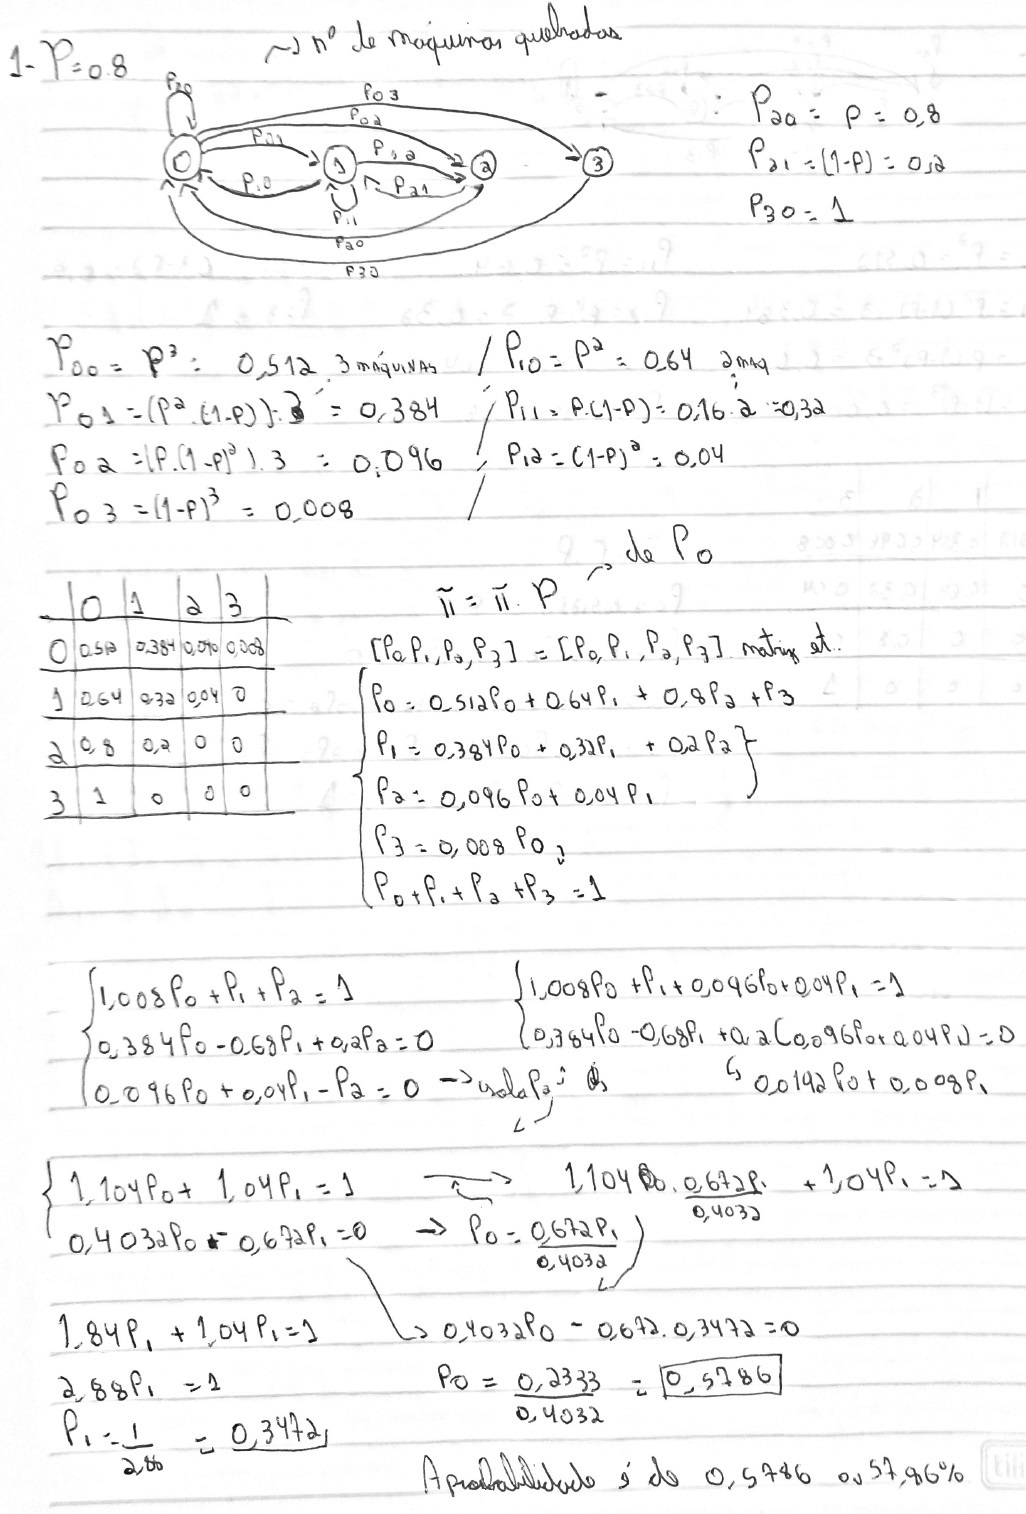 1- P=0.8
~> nº de máquinas quebradas
P00
P03
P02
P01
P12
0
1
2
3
P10
P21
P11
P20
P30
: P20 = P = 0,8
P21 = (1-P) = 0,2
P30 = 1
P00 = P³ = 0,512 3 MÁQUINAS / P10 = P² = 0,64 2 maq
P01 = (P².(1-P)).3 = 0,384 / P11 = P.(1-P) = 0,16.2 = 0,32
P02 = (P.(1-P)²).3 = 0,096 / P12 = (1-P)² = 0,04
P03 = (1-P)³ = 0,008
de P0
0 1 2 3
0 0,512 0,384 0,096 0,008
1 0,64 0,32 0,04 0
2 0,8 0,2 0 0
3 1 0 0 0
π = π . P
[P0,P1,P2,P3] = [P0,P1,P2,P3]. matriz et..
P0 = 0,512P0 + 0,64P1 + 0,8P2 + P3
P1 = 0,384P0 + 0,32P1 + 0,2P2
P2 = 0,096P0 + 0,04P1
P3 = 0,008P0
P0 + P1 + P2 + P3 = 1
1,008P0 + P1 + P2 = 1
0,384P0 - 0,68P1 + 0,2P2 = 0
0,096P0 + 0,04P1 - P2 = 0 -> isola P2
1,008P0 + P1 + 0,096P0 + 0,04P1 = 1
0,384P0 - 0,68P1 + 0,2(0,096P0 + 0,04P1) = 0
0,0192P0 + 0,008P1
1,104P0 + 1,04P1 = 1
0,4032P0 - 0,672P1 = 0 -> P0 = 0,672P1 / 0,4032
1,104P0. 0,672P1 / 0,4032 + 1,04P1 = 1
1,84P1 + 1,04P1 = 1
2,88P1 = 1
P1 = 1 / 2,88 = 0,3472
0,4032P0 - 0,672.0,3472 = 0
P0 = 0,2333 / 0,4032 = 0,5786
A probabilidade é de 0,5786 ou 57,86%
tili